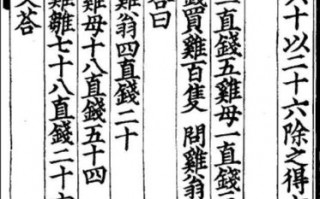 六十以二十六除之得
一直錢五雞母一直錢三
錢買雞百隻 問雞翁
答曰
雞翁四直錢二十
雞母十八直錢五十四
雞雛七十八直錢二十六
又答